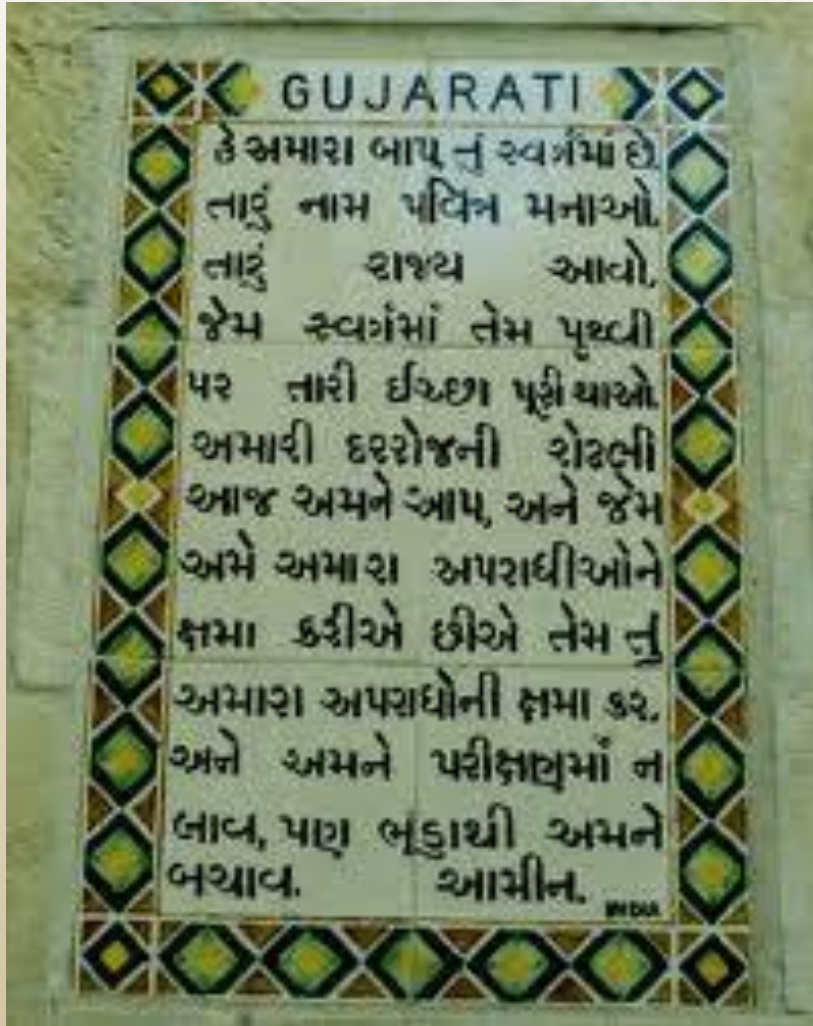 GUJARATI
હે અમારા બાપ તું સ્વર્ગમાં છે.
તારું નામ પવિત્ર મનાઓ.
તારું રાજ્ય આવો.
જેમ સ્વર્ગમાં તેમ પૃથ્વી
પર તારી ઈચ્છા પૂરી થાઓ.
અમારી દરરોજની રોટલી
આજ અમને આપ, અને જેમ
અમે અમારા અપરાધીઓને
ક્ષમા કરીએ છીએ તેમ તું
અમારા અપરાધોની ક્ષમા કર.
અને અમને પરીક્ષણમાં ન
લાવ, પણ ભૂંડાથી અમને
બચાવ. આમીન.
INDIA